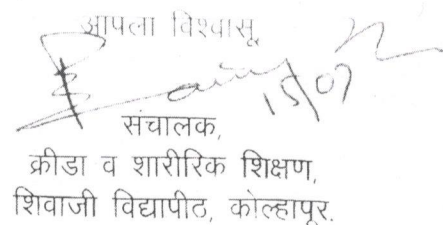 आपला विश्वासू,
15/07
संचालक,
क्रीडा व शारीरिक शिक्षण,
शिवाजी विद्यापीठ, कोल्हापूर.